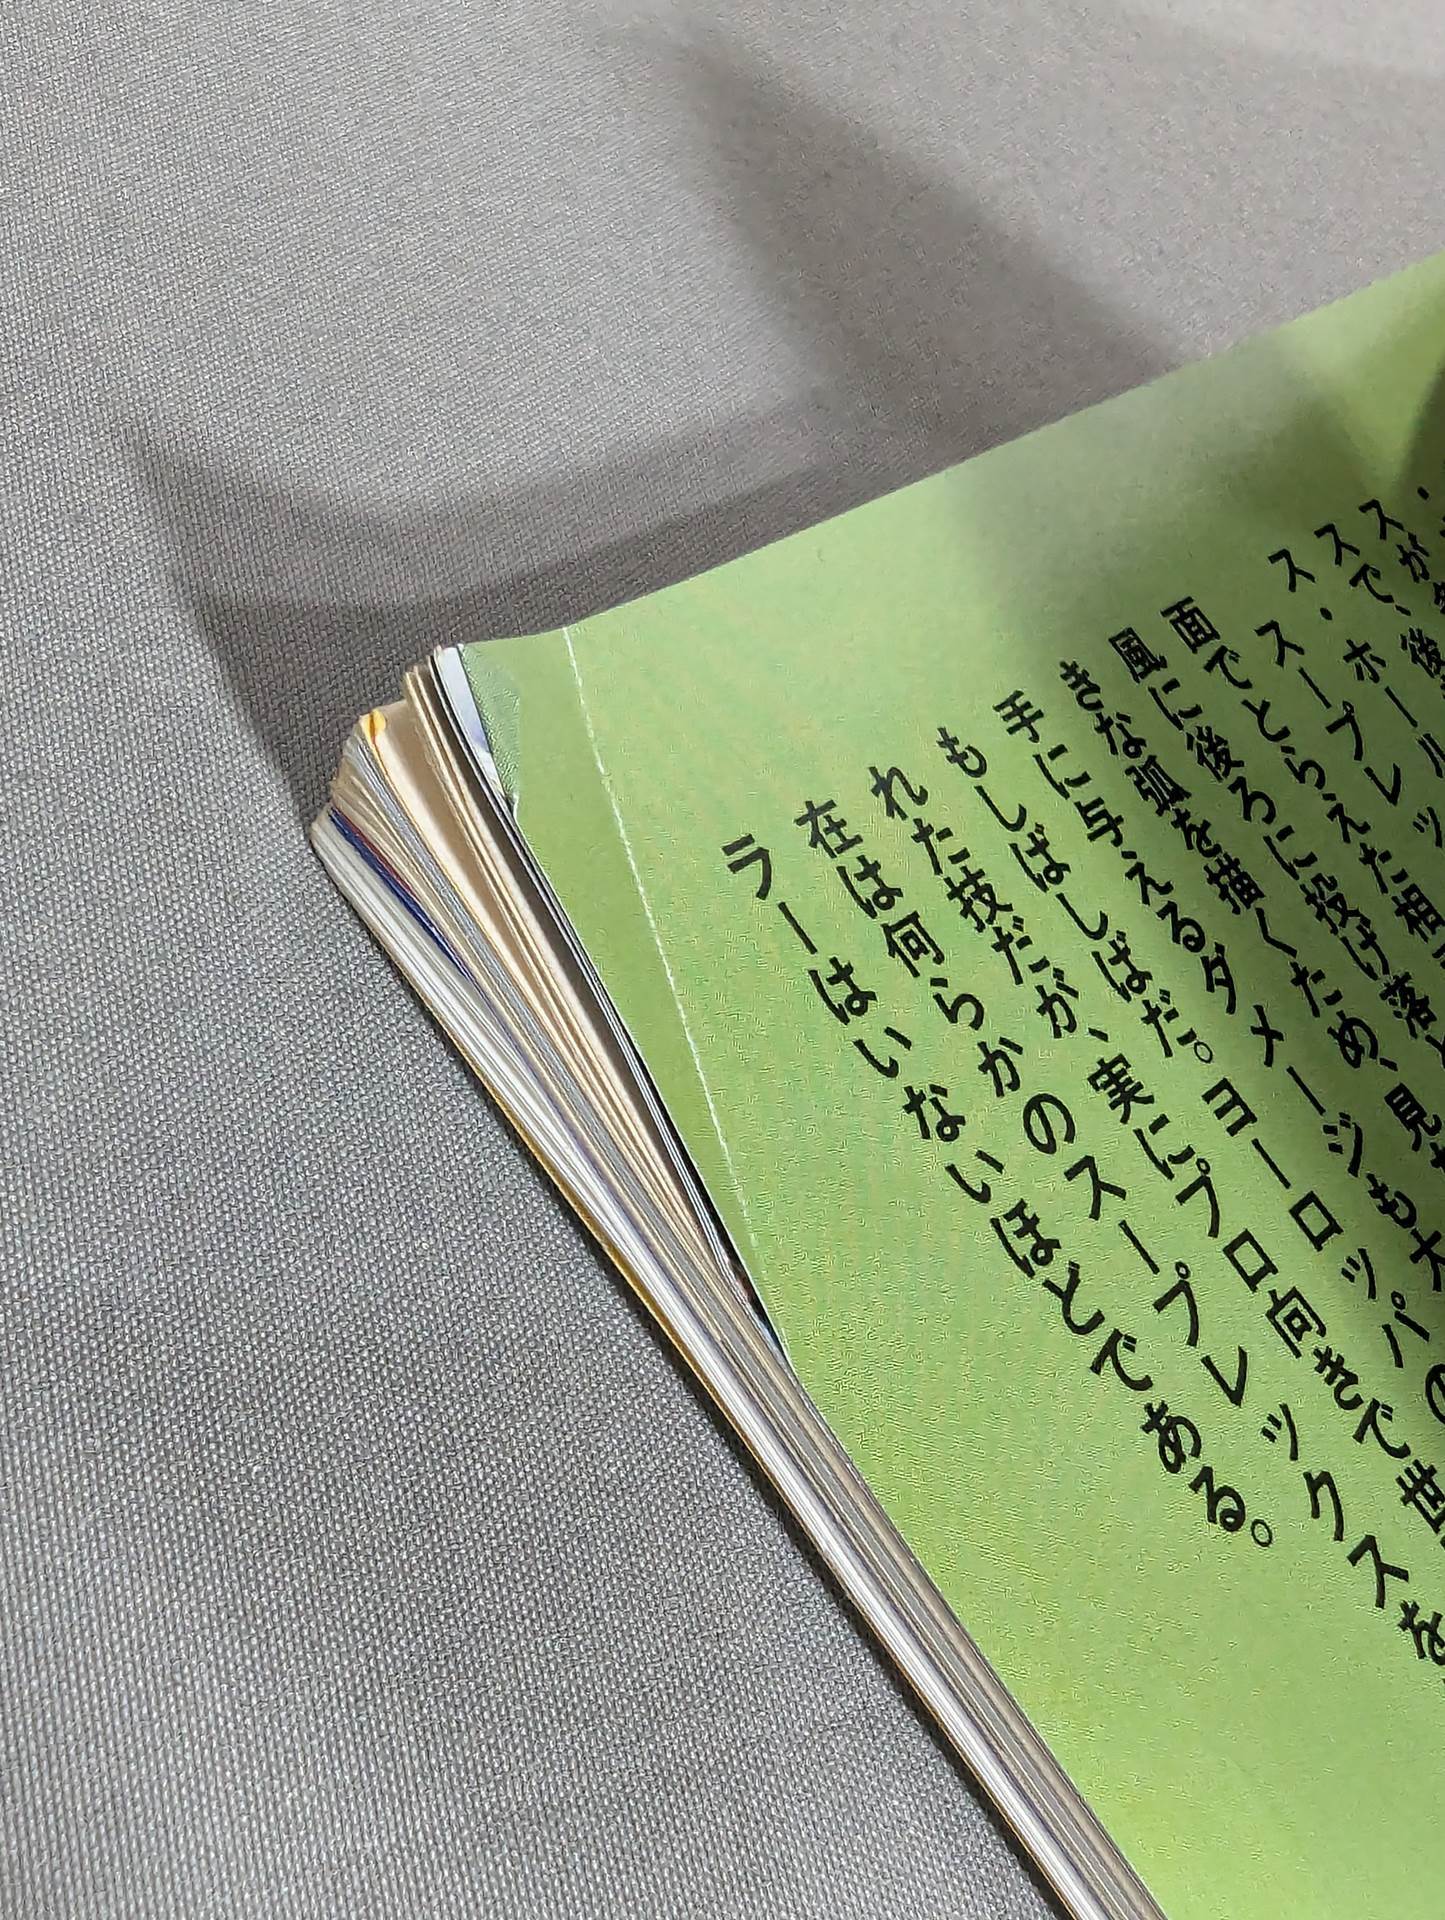 スが
スで、後
ス・ホール
スープレッ
面でとらえた相
風に後ろに投げ落と
きな弧を描くため、見
手に与えるダメージも大
もしばしばだ。ヨーロッパの
れた技だが、実にプロ向きで世
在は何らかのスープレックスを
ラーはいないほどである。